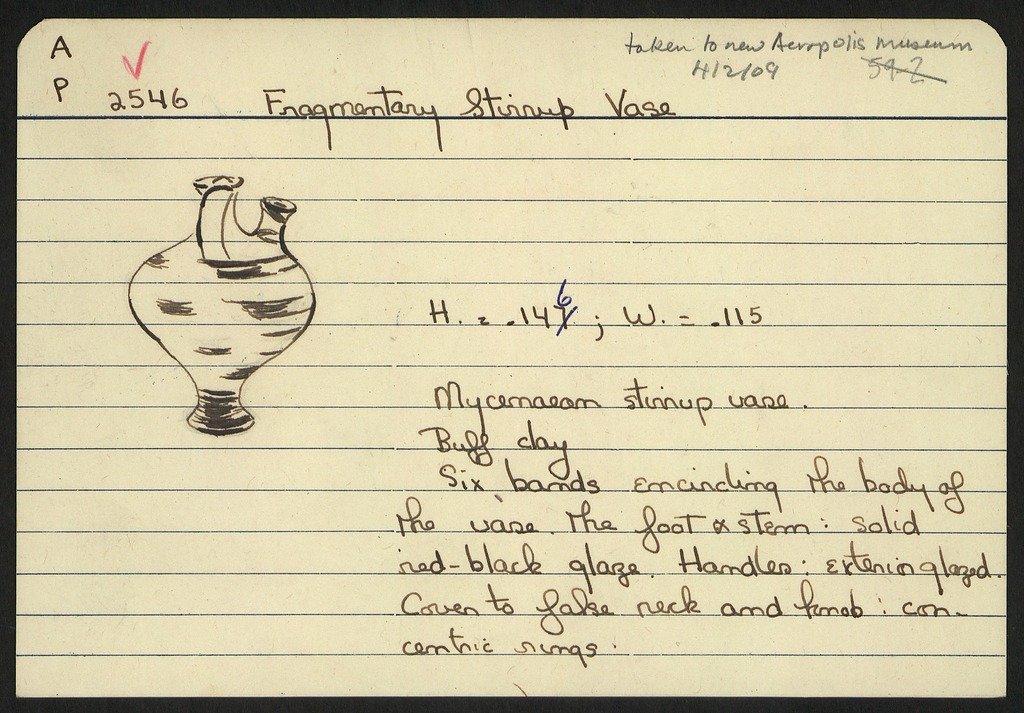 A
P 2546
taken to new Acropolis museum
4/2/09
Fragmentary Stirrup Vase
H. = .146 ; W. = .115
Mycenaean stirrup vase.
Buff clay
Six bands encircling the body of
the vase. The foot & stem : solid
red-black glaze. Handles : exterior glazed.
Cover to false neck and knob : con-
centric rings.